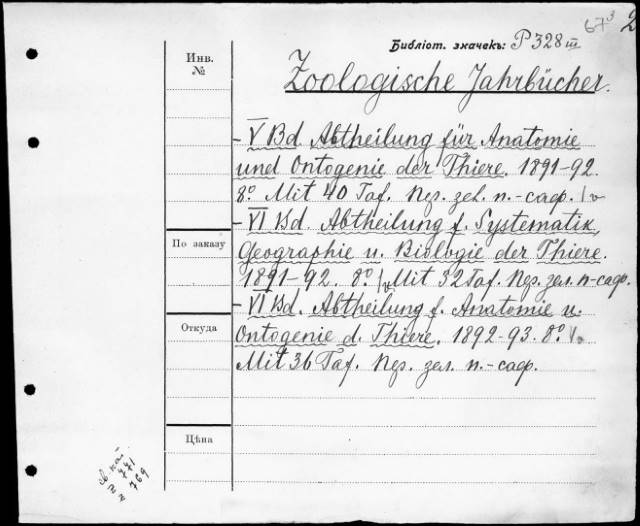 67³ 2
Библіот. значекъ: P 328 III
Инв.
№
Zoologische Jahrbücher.
- V Bd. Abtheilung für Anatomie
und Ontogenie der Thiere. 1891-92.
8º Mit 40 Taf. Пер. зел. п.-саф.
- VI Bd. Abtheilung f. Systematik,
По заказу
Geographie u. Biologie der Thiere.
1891-92. 8º Mit 32 Taf. Пер. зел. п-саф.
- VI Bd. Abtheilung f. Anatomie u.
Откуда
Ontogenie d. Thiere. 1892-93. 8º
Mit 36 Taf. Пер. зел. п.-саф.
Цѣна
771
769